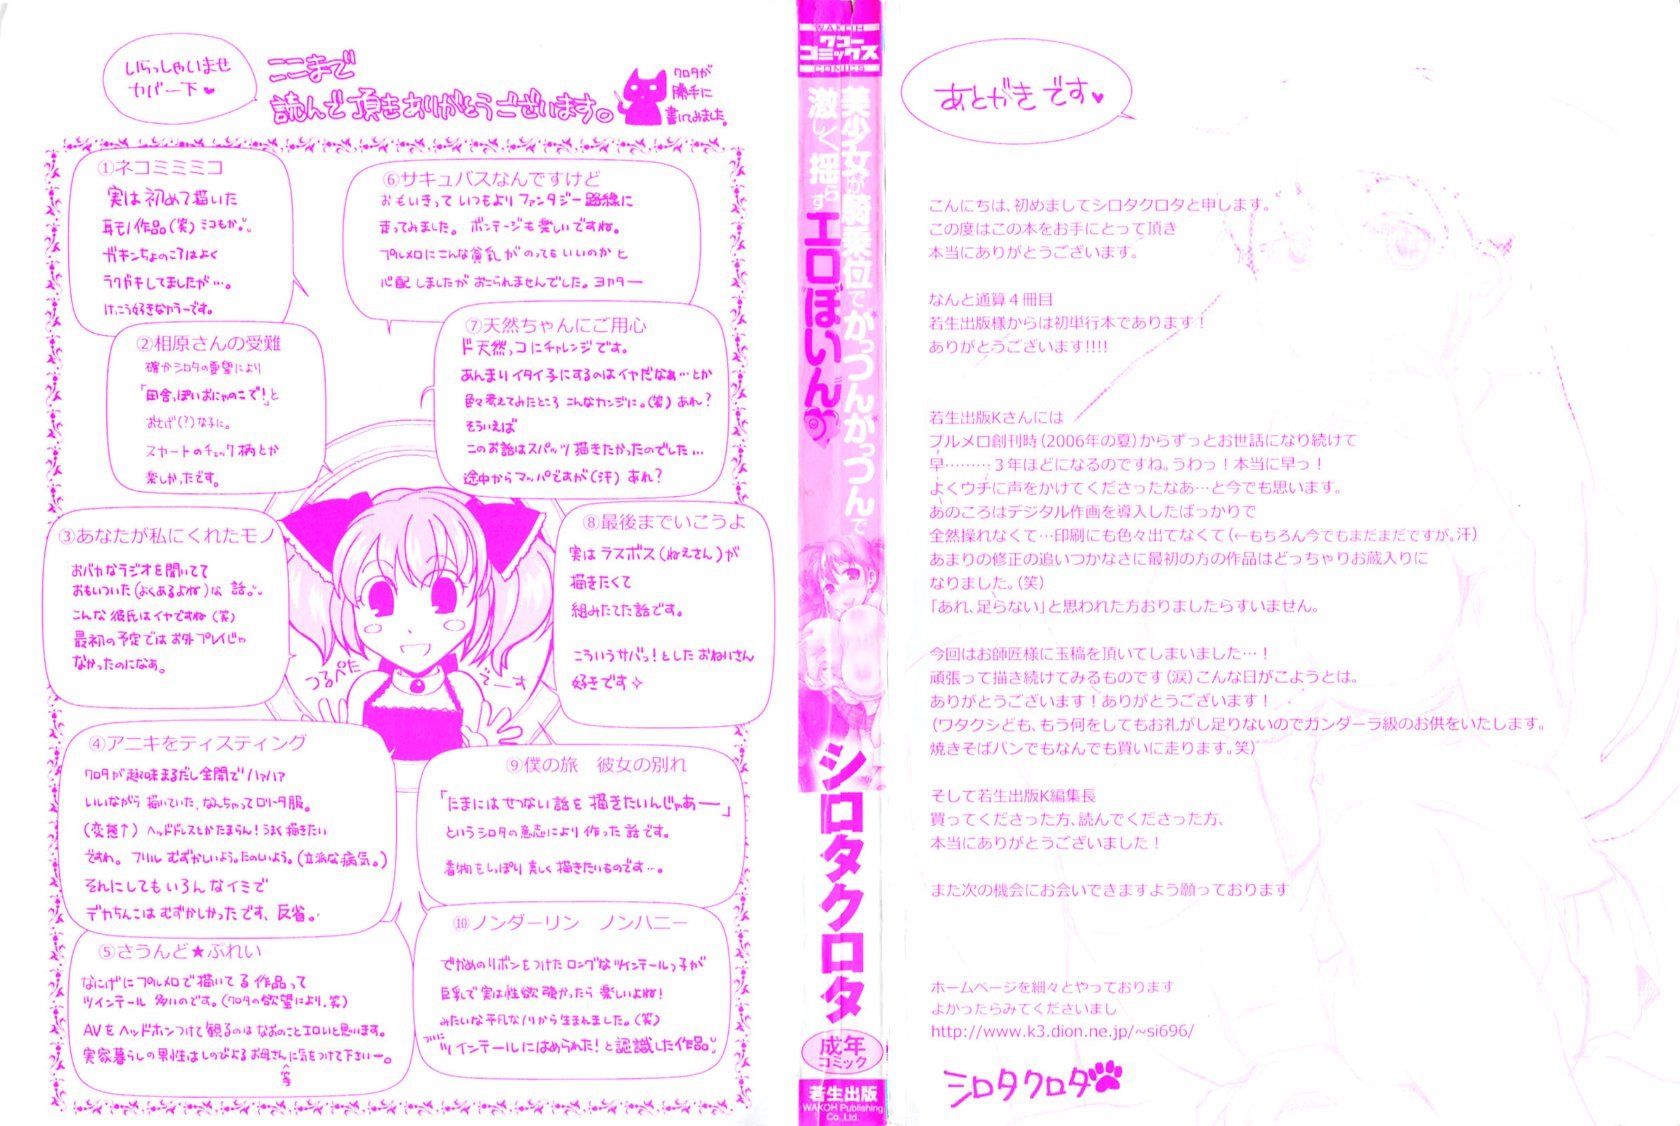 いらっしゃいませ
カバー下♥
ここまで
読んで頂きありがとうございます。
クロタが
勝手に
書いてみました。
①ネコミミミコ
実は初めて描いた
耳モノ作品。(笑) ミコもか。
ガキンちょのころはよく
ラクガキしてましたが…。
けっこう好きなカラーです。
②相原さんの受難
確かシロタの要望により
「田舎っぽいおにゃのこで！」と
おさげ(？)な子に。
スカートのチェック柄とか
楽しかったです。
③あなたが私にくれたモノ
おバカなラジオを聞いてて
おもいついた(よくあるよね)な 話。
こんな彼氏はイヤですね (笑)
最初の予定ではお外プレイじゃ
なかったのになぁ。
④アニキをテイスティング
クロタが趣味まるだし全開でハァハァ
いいながら描いていた、なんちゃってロリータ服。
(変態↑) ヘッドドレスとかたまらん！うまく描きたい
ですわ。フリル むずかしいよう。たのしいよう。(立派な病気。)
それにしてもいろんなイミで
デカちんこはむずかしかったです、反省。
⑤さうんど★ぷれい
なにげにプルメロで描いてる作品って
ツインテール 多いのです。(クロタの欲望により。笑)
AVをヘッドホンつけて観るのは なおのことエロいと思います。
実家暮らしの男性はしのびよるお母さんに気をつけて下さいー。
等
⑥サキュバスなんですけど
おもいきって いつもより ファンタジー路線に
走ってみました。 ボンテージも楽しいですね。
プルメロにこんな貧乳がのってもいいのかと
心配しましたがおこられませんでした。ヨカター
⑦天然ちゃんにご用心
ド天然っコにチャレンジです。
あんまりイタイ子にするのはイヤだなぁ…とか
色々考えてみたところ こんなカンジに。(笑) あれ？
そういえば
このお話はスパッツ描きたかったのでした…
途中からマッパですが(汗) あれ？
⑧最後までいこうよ
実は ラスボス(ねえさん)が
描きたくて
組みたてた話です。
こういうサバっ！としたおねいさん
好きです✧
つるぺた
でーす
⑨僕の旅　彼女の別れ
「たまにはせつない話を 描きたいんじゃあー」
というシロタの意志により 作った話です。
着物をしっぽり 美しく描きたいものです…。
⑩ノンダーリン　ノンハニー
でかめのリボンをつけたロングなツインテールっ子が
巨乳で実は性欲強かったら 楽しいよね！
みたいな平凡なノリから生まれました。(笑)
ついに
ツインテールにはめられた！と認識した作品
WAKOH
ワコー
コミックス
COMICS
美少女が騎乗位でがっつんがっつんで
激しく揺らす
エロぼいん
シロタクロタ
成年
コミック
若生出版
WAKOH Publishing
Co.,Ltd.
あとがきです♥
こんにちは、初めましてシロタクロタと申します。
この度はこの本をお手にとって頂き
本当にありがとうございます。
なんと通算４冊目
若生出版様からは初単行本であります！
ありがとうございます!!!!
若生出版Kさんには
プルメロ創刊時（2006年の夏）からずっとお世話になり続けて
早………３年ほどになるのですね。うわっ！本当に早っ！
よくウチに声をかけてくださったなあ…と今でも思います。
あのころはデジタル作画を導入したばっかりで
全然操れなくて…印刷にも色々出てなくて（←もちろん今でもまだまだですが。汗）
あまりの修正の追いつかなさに最初の方の作品はどっちゃりお蔵入りに
なりました。（笑）
「あれ、足らない」と思われた方おりましたらすいません。
今回はお師匠様に玉稿を頂いてしまいました…！
頑張って描き続けてみるものです（涙）こんな日がこようとは。
ありがとうございます！ありがとうございます！
（ワタクシども、もう何をしてもお礼がし足りないのでガンダーラ級のお供をいたします。
焼きそばパンでもなんでも買いに走ります。笑）
そして若生出版K編集長
買ってくださった方、読んでくださった方、
本当にありがとうございました！
また次の機会にお会いできますよう願っております
ホームページを細々とやっております
よかったらみてくださいまし
http://www.k3.dion.ne.jp/~si696/
シロタクロタ